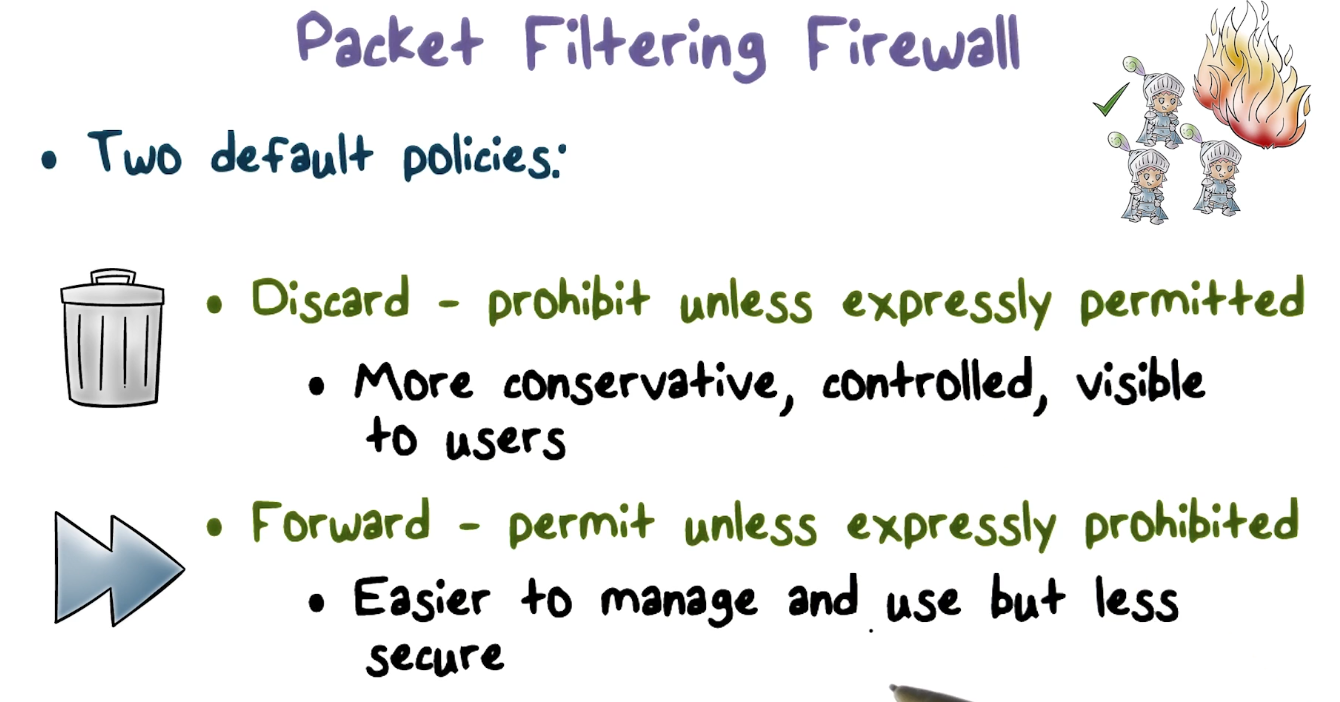 Packet Filtering Firewall
• Two default policies:
• Discard - prohibit unless expressly permitted
• More conservative, controlled, visible
to users
• Forward - permit unless expressly prohibited
• Easier to manage and use but less
secure